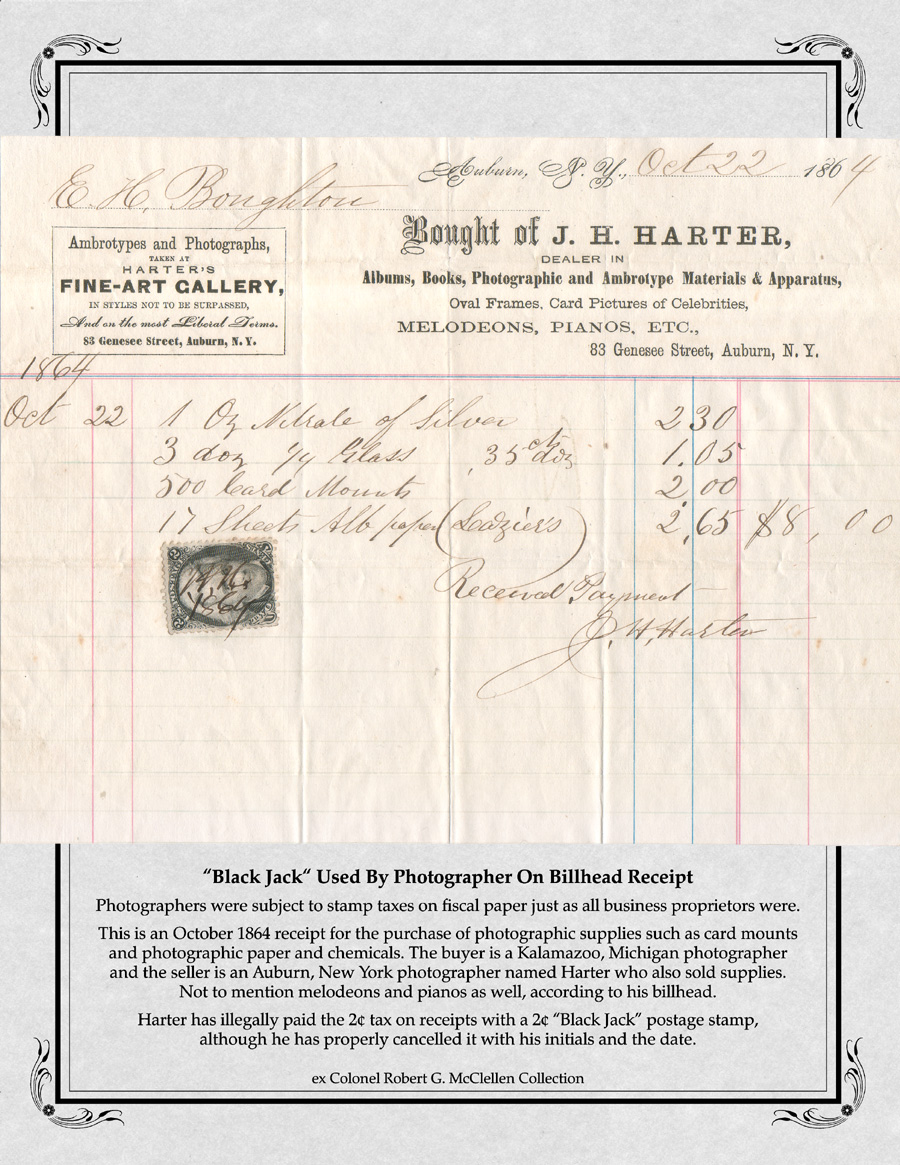 Auburn, N. Y., Oct 22 1864
E. H. Boughton
Ambrotypes and Photographs,
TAKEN AT
HARTER'S
FINE-ART GALLERY,
IN STYLES NOT TO BE SURPASSED,
And on the most Liberal Terms.
83 Genesee Street, Auburn, N. Y.
Bought of J. H. HARTER,
DEALER IN
Albums, Books, Photographic and Ambrotype Materials & Apparatus,
Oval Frames, Card Pictures of Celebrities,
MELODEONS, PIANOS, ETC.,
83 Genesee Street, Auburn, N. Y.
1864
Oct 22 1 Oz Nitrate of Silver 2 30
3 doz 1/4 Glass 35 cts doz 1.05
500 Card Mounts 2.00
17 Sheets Alb paper 2.65 $8,00
1864
Received Payment
J. H. Harter
“Black Jack“ Used By Photographer On Billhead Receipt
Photographers were subject to stamp taxes on fiscal paper just as all business proprietors were.
This is an October 1864 receipt for the purchase of photographic supplies such as card mounts
and photographic paper and chemicals. The buyer is a Kalamazoo, Michigan photographer
and the seller is an Auburn, New York photographer named Harter who also sold supplies.
Not to mention melodeons and pianos as well, according to his billhead.
Harter has illegally paid the 2¢ tax on receipts with a 2¢ “Black Jack” postage stamp,
although he has properly cancelled it with his initials and the date.
ex Colonel Robert G. McClellen Collection